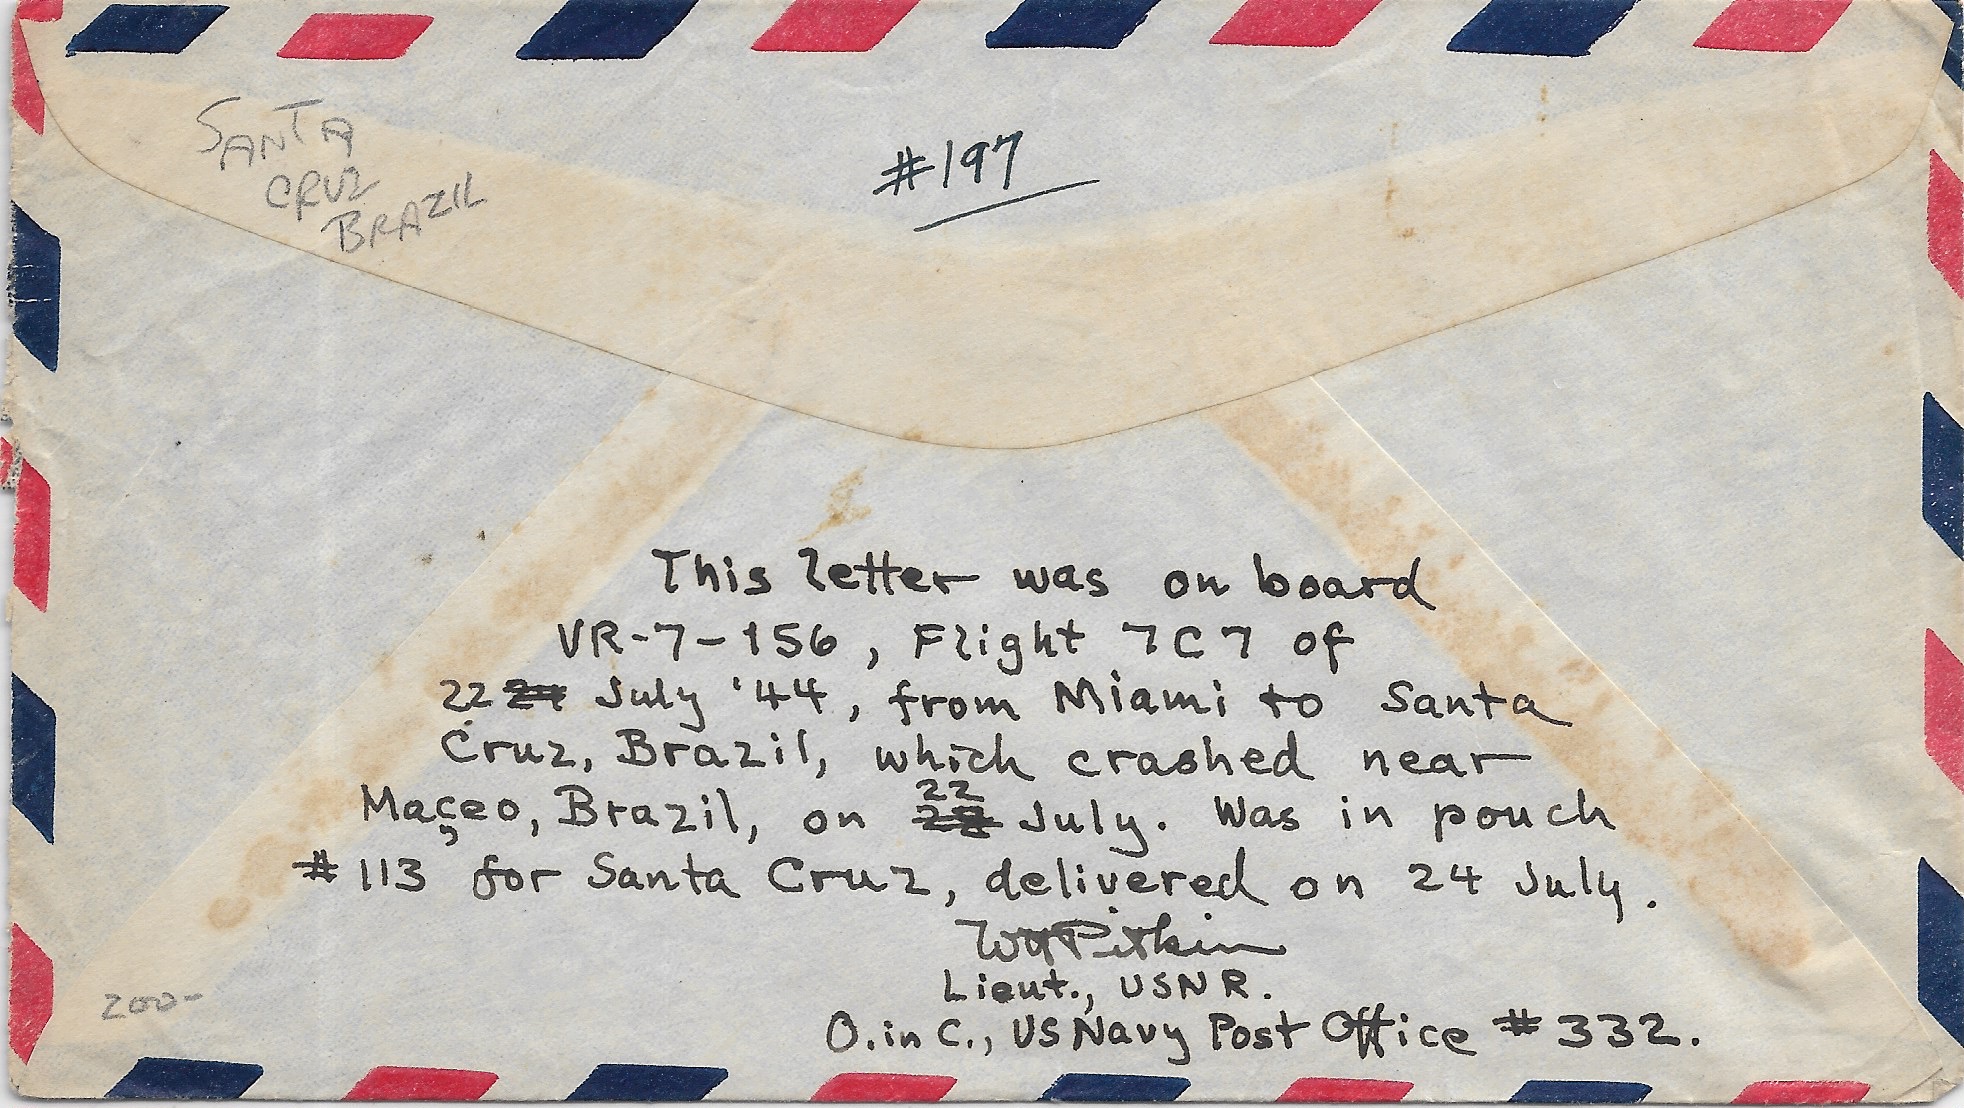 SANTA
CRUZ
BRAZIL
#197
This letter was on board
VR-7-156, Flight 7C7 of
22 July '44, from Miami to Santa
Cruz, Brazil, which crashed near
Maçeo, Brazil, on 22 July. Was in pouch
#113 for Santa Cruz, delivered on 24 July.
Pitkin
Lieut., USNR.
O. in C., US Navy Post Office #332.
200-